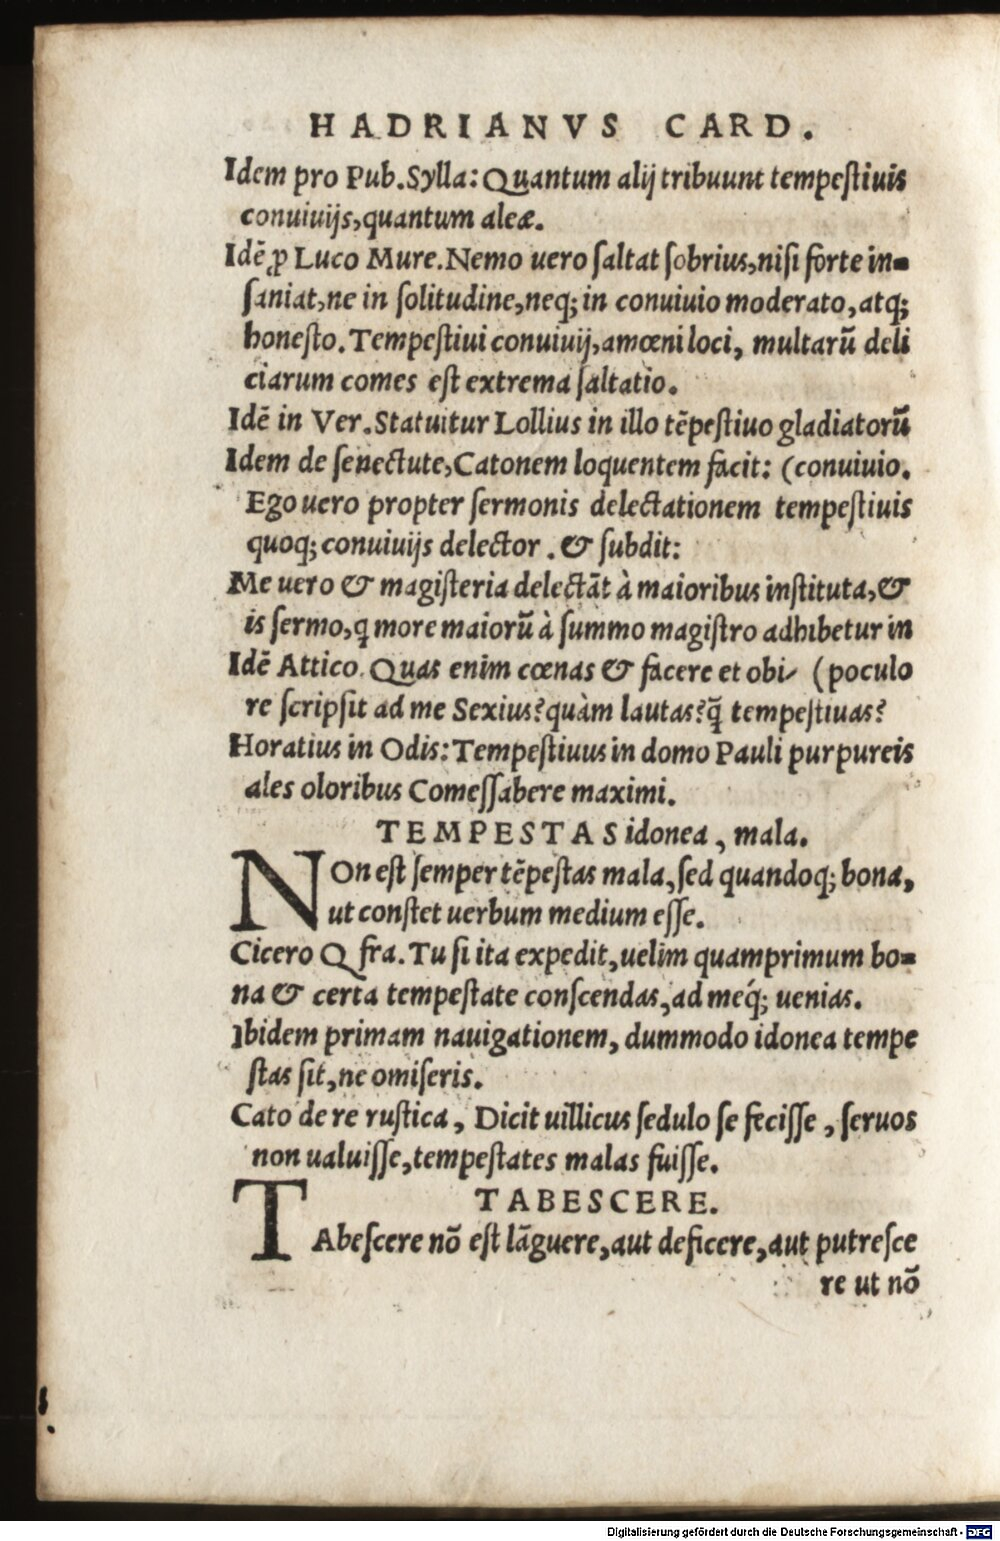 HADRIANVS CARD.
Idem pro Pub. Sylla: Quantum alij tribuunt tempeſtiuis
conuiuijs, quantum aleæ.
Idē ꝓ Luco Mure. Nemo uero ſaltat ſobrius, niſi forte in-
ſaniat, ne in ſolitudine, neq; in conuiuio moderato, atq;
honeſto. Tempeſtiui conuiuij, amœni loci, multarū deli
ciarum comes eſt extrema ſaltatio.
Idē in Ver. Statuitur Lollius in illo tēpeſtiuo gladiatorū
Idem de ſenectute, Catonem loquentem facit: (conuiuio.
Ego uero propter ſermonis delectationem tempeſtiuis
quoq; conuiuijs delector . & ſubdit:
Me uero & magiſteria delectāt à maioribus inſtituta, &
is ſermo, q more maiorū à ſummo magiſtro adhibetur in
Idē Attico. Quas enim cœnas & facere et obi- (poculo
re ſcripſit ad me Sexius? quàm lautas? q̃ tempeſtiuas?
Horatius in Odis: Tempeſtiuus in domo Pauli purpureis
ales oloribus Comeſſabere maximi.
TEMPESTAS idonea, mala.
NOn eſt ſemper tēpeſtas mala, ſed quandoq; bona,
ut conſtet uerbum medium eſſe.
Cicero Q fra. Tu ſi ita expedit, uelim quamprimum bo-
na & certa tempeſtate conſcendas, ad méq; uenias.
Ibidem primam nauigationem, dummodo idonea tempe
ſtas ſit, ne omiſeris.
Cato de re ruſtica, Dicit uillicus ſedulo ſe feciſſe, ſeruos
non ualuiſſe, tempeſtates malas fuiſſe.
TABESCERE.
TAbeſcere nō eſt lāguere, aut deficere, aut putreſce
re ut nō
Digitalisierung gefördert durch die Deutsche Forschungsgemeinschaft - DFG